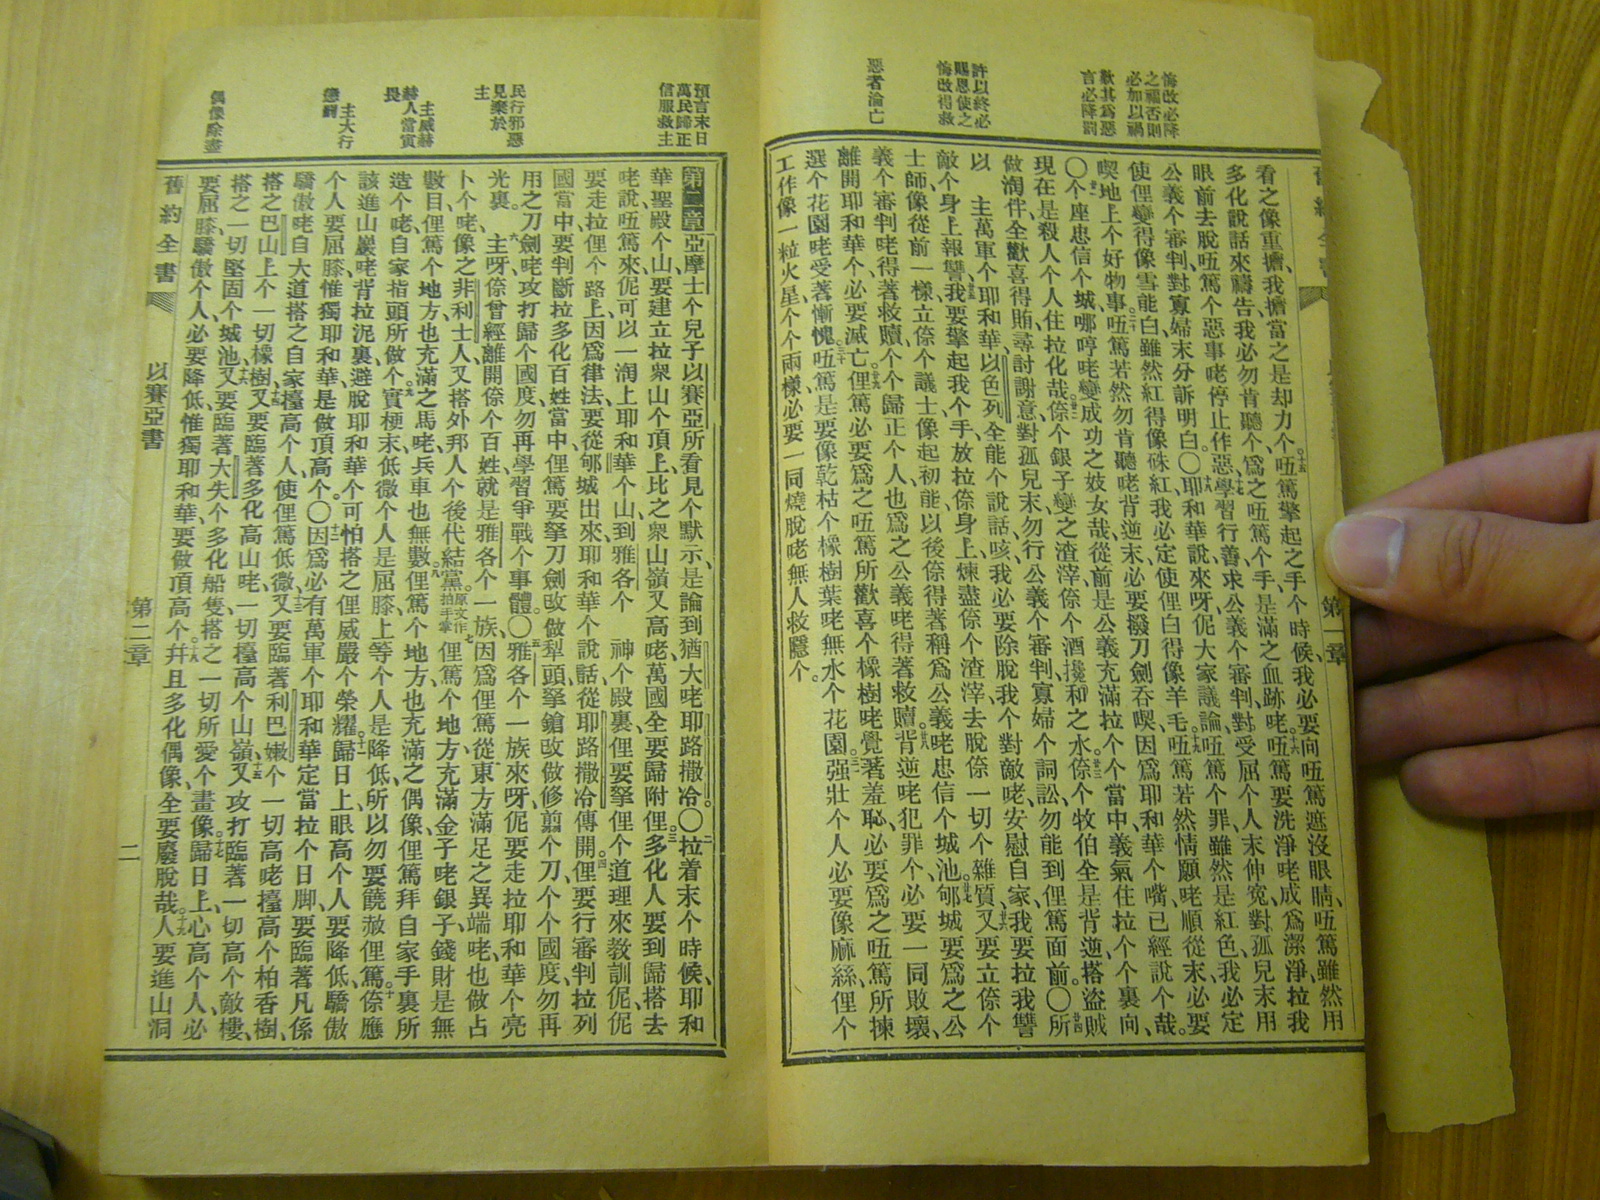 悔改必降
之福否則
必加以禍
歎其爲惡
言必降罰
許以終必
賜恩使之
悔改得救
惡者淪亡
第一章
看之像重擔、我擔當之是却力个、十五㕶篤擎起之手个時候、我必要向㕶篤遮沒眼睛、㕶篤雖然用
多化說話來禱告、我必勿肯聽个、爲之㕶篤个手、是滿之血跡咾。十六㕶篤要洗淨咾成爲潔淨、拉我
眼前去脫㕶篤个惡事咾停止作惡、十七學習行善、求公義个審判、對受屈个人末伸寃、對孤兒末用
公義个審判、對寡婦末分訴明白。〇十八耶和華說、來呀、伲大家議論、㕶篤个罪雖然是紅色、我必定
使俚變得像雪能白、雖然紅得像硃紅、我必定使俚白得像羊毛。十九㕶篤若然情願咾順從末、必要
喫地上个好物事。二十㕶篤若然勿肯聽咾背逆末、必要撥刀劍吞喫、因爲耶和華个嘴、已經說个哉。
〇廿一个座忠信个城、哪哼咾變成功之妓女哉、從前是公義充滿拉个、个當中、義氣住拉个、个裏向、
現在是殺人个人住拉化哉。廿二倷个銀子變之渣滓、倷个酒攙和之水、廿三倷个牧伯全是背逆、搭盜賊
做淘伴、全歡喜得賄、尋討謝意、對孤兒末、勿行公義个審判、寡婦个詞訟、勿能到俚篤面前。〇廿四所
以　主萬軍个耶和華、以色列全能个說話、咳、我必要除脫我个對敵咾、安慰自家、我要拉我讐
敵个身上報讐、廿五我要擎起我个手放拉倷身上、煉盡倷个渣滓、去脫倷一切个雜質、廿六又要立倷个
士師、像從前一樣、立倷个議士、像起初能、以後倷得著稱爲公義咾忠信个城池。廿七郇城要爲之公
義个審判咾得著救贖、个个歸正个人、也爲之公義咾得著救贖。廿八背逆咾犯罪个、必要一同敗壞、
離開耶和華个、必要滅亡。廿九俚篤必要爲之㕶篤所歡喜个橡樹咾覺著羞恥、必要爲之㕶篤所揀
選个花園咾受著慚愧。三十㕶篤是要像乾枯个橡樹葉咾無水个花園。三一强壯个人必要像麻絲、俚个
工作像一粒火星、个个兩樣、必要一同燒脫咾無人救隱个。
預言末日
萬民歸正
信服救主
民行邪惡
見棄於
主
主威赫
赫人當寅
畏
主大行
懲罰
偶像除盡
第二章亞摩士个兒子以賽亞所看見个默示、是論到猶大咾耶路撒冷。〇二拉着末个時候、耶和
華聖殿个山、要建立拉衆山个頂上、比之衆山嶺又高咾、萬國全要歸附俚。三多化人要到歸搭去
咾說、㕶篤來、伲可以一淘上耶和華个山、到雅各个　神个殿裏、俚要拏俚个道理來教訓伲、伲
要走拉俚个路上、因爲律法要從郇城出來、耶和華个說話、從耶路撒冷傳開。四俚要行審判拉列
國當中、要判斷拉多化百姓當中、俚篤要拏刀劍改做犂頭、拏鎗改做修剪个刀、个个國度、勿再
用之刀劍咾攻打歸个國度、勿再學習爭戰个事體。〇五雅各个一族來呀、伲要走拉耶和華个亮
光裏。六　主呀、倷曾經離開倷个百姓、就是雅各个一族、因爲俚篤從東方滿足之異端咾、也做占
卜个咾、像之非利士人、又搭外邦人个後代結黨。原文作拍手掌七俚篤个地方、充滿金子咾銀子、錢財是無
數目、俚篤个地方、也充滿之馬咾、兵車也無數。八俚篤个地方、也充滿之偶像、俚篤拜自家手裏所
造个咾、自家指頭所做个實梗末、九低微个人是屈膝、上等个人是降低、所以勿要饒赦俚篤。十倷應
該進山巖咾背拉泥裏、避脫耶和華个可怕搭之俚威嚴个榮耀。十一歸日上、眼高个人要降低、驕傲
个人要屈膝、惟獨耶和華是做頂高个。〇十二因爲必有萬軍个耶和華定當拉个日脚、要臨著凡係
驕傲咾自大道搭之自家檯高个人、使俚篤低微、十三又要臨著利巴嫩个一切高咾檯高个柏香樹、
搭之巴山上个一切橡樹、十四又要臨著多化高山咾、一切檯高个山嶺、十五又攻打臨著一切高个敵樓、
搭之一切堅固个城池、十六又要臨著大失个多化船隻、搭之一切所愛个畫像。十七歸日上、心高个人、必
要屈膝、驕傲个人必要降低、惟獨耶和華、要做頂高个、十八幷且多化偶像、全要廢脫哉。十九人要進山洞
舊約全書
以賽亞書
第二章
二